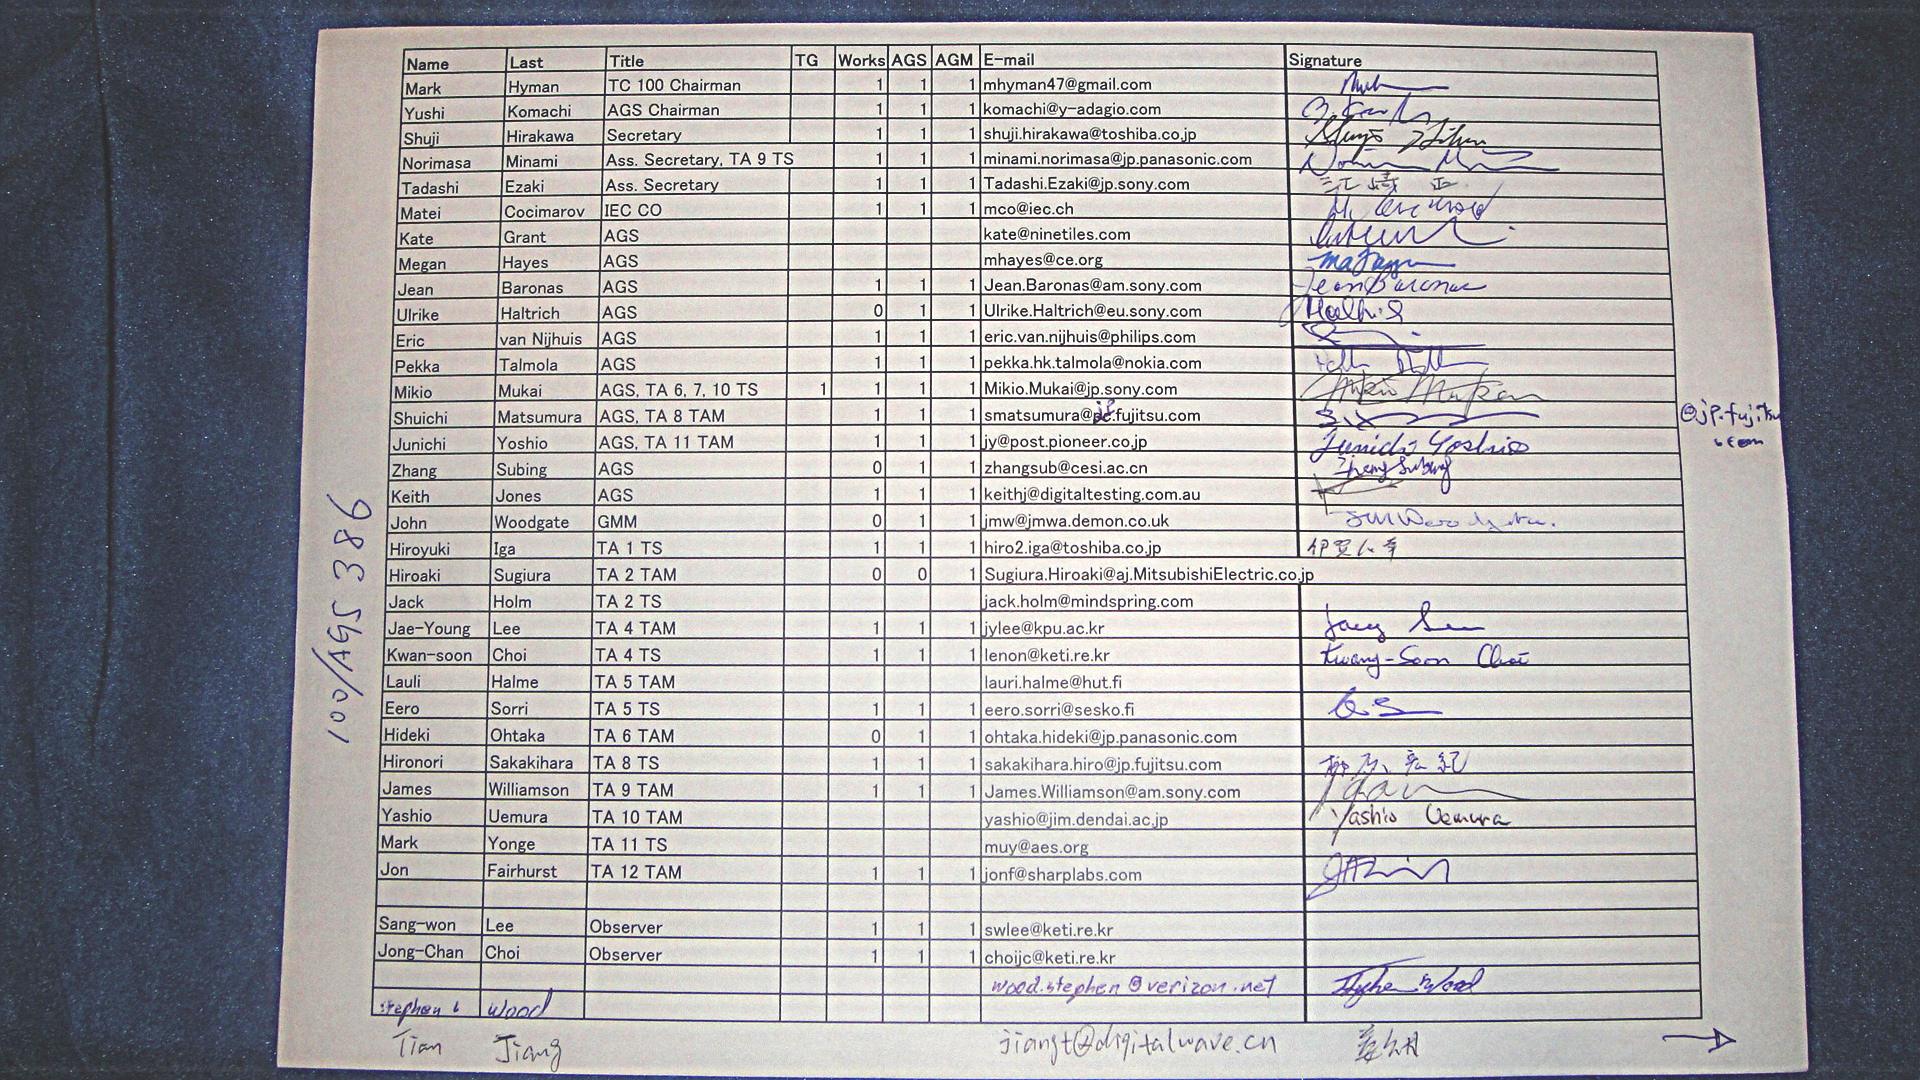 Name Last Title TG Works AGS AGM E-mail Signature
Mark Hyman TC 100 Chairman 1 1 1 mhyman47@gmail.com
Yushi Komachi AGS Chairman 1 1 1 komachi@y-adagio.com
Shuji Hirakawa Secretary 1 1 1 shuji.hirakawa@toshiba.co.jp
Norimasa Minami Ass. Secretary, TA 9 TS 1 1 1 minami.norimasa@jp.panasonic.com
Tadashi Ezaki Ass. Secretary 1 1 1 Tadashi.Ezaki@jp.sony.com 江崎 正
Matei Cocimarov IEC CO 1 1 1 mco@iec.ch
Kate Grant AGS kate@ninetiles.com
Megan Hayes AGS mhayes@ce.org
Jean Baronas AGS 1 1 1 Jean.Baronas@am.sony.com Jean Baronas
Ulrike Haltrich AGS 0 1 1 Ulrike.Haltrich@eu.sony.com
Eric van Nijhuis AGS 1 1 1 eric.van.nijhuis@philips.com
Pekka Talmola AGS 1 1 1 pekka.hk.talmola@nokia.com
Mikio Mukai AGS, TA 6, 7, 10 TS 1 1 1 1 Mikio.Mukai@jp.sony.com Mikio Mukai
Shuichi Matsumura AGS, TA 8 TAM 1 1 1 smatsumura@jp.fujitsu.com @jp.fujitsu
.com
Junichi Yoshio AGS, TA 11 TAM 1 1 1 jy@post.pioneer.co.jp Junichi Yoshio
Zhang Subing AGS 0 1 1 zhangsub@cesi.ac.cn Zhang Subing
Keith Jones AGS 1 1 1 keithj@digitaltesting.com.au
John Woodgate GMM 0 1 1 jmw@jmwa.demon.co.uk
Hiroyuki Iga TA 1 TS 1 1 1 hiro2.iga@toshiba.co.jp
Hiroaki Sugiura TA 2 TAM 0 0 1 Sugiura.Hiroaki@aj.MitsubishiElectric.co.jp
Jack Holm TA 2 TS jack.holm@mindspring.com
Jae-Young Lee TA 4 TAM 1 1 1 jylee@kpu.ac.kr
Kwan-soon Choi TA 4 TS 1 1 1 lenon@keti.re.kr Kwang-Soon Choi
Lauli Halme TA 5 TAM lauri.halme@hut.fi
Eero Sorri TA 5 TS 1 1 1 eero.sorri@sesko.fi
Hideki Ohtaka TA 6 TAM 0 1 1 ohtaka.hideki@jp.panasonic.com
Hironori Sakakihara TA 8 TS 1 1 1 sakakihara.hiro@jp.fujitsu.com
James Williamson TA 9 TAM 1 1 1 James.Williamson@am.sony.com
Yashio Uemura TA 10 TAM yashio@jim.dendai.ac.jp Yashio Uemura
Mark Yonge TA 11 TS muy@aes.org
Jon Fairhurst TA 12 TAM 1 1 1 jonf@sharplabs.com
Sang-won Lee Observer 1 1 1 swlee@keti.re.kr
Jong-Chan Choi Observer 1 1 1 choijc@keti.re.kr
wood.stephen@verizon.net Stephen Wood
Stephen Wood
Tian Jiang jiangt@digitalwave.cn
100/AGS 386